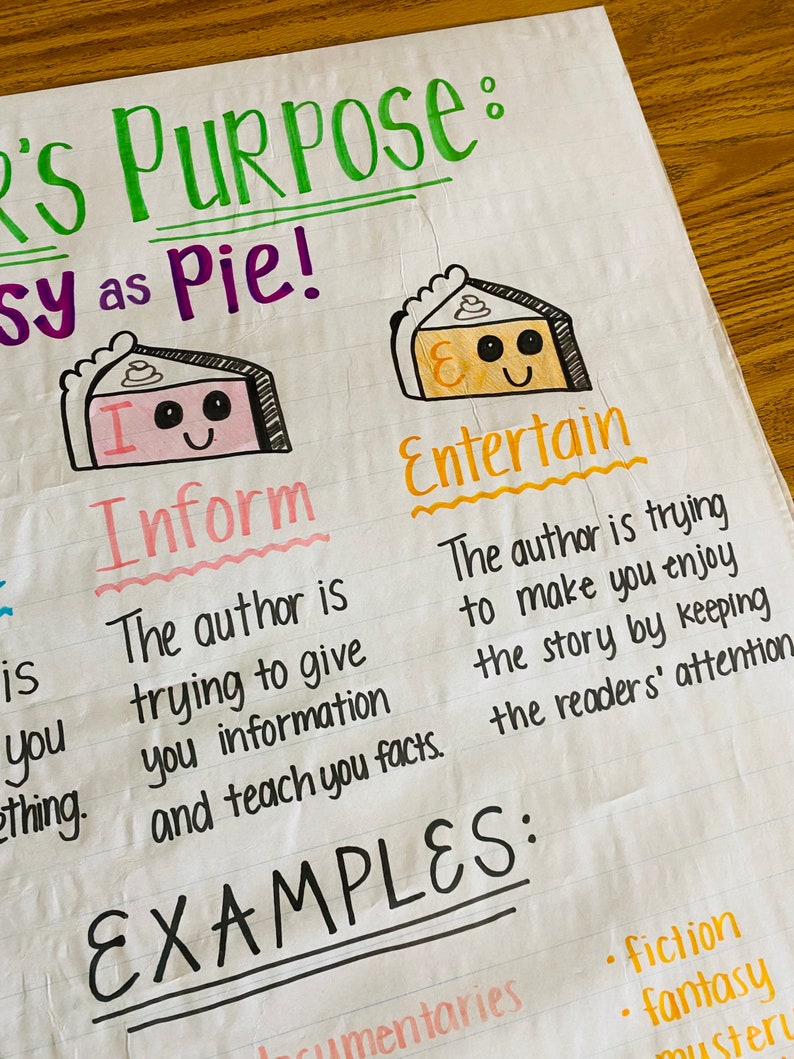 R's PURPOSE:
sy as Pie!
I
E
Inform
Entertain
is
you
ething.
The author is
trying to give
you information
and teach you facts.
The author is trying
to make you enjoy
the story by keeping
the readers' attention
EXAMPLES:
documentaries
• fiction
• fantasy
mystery